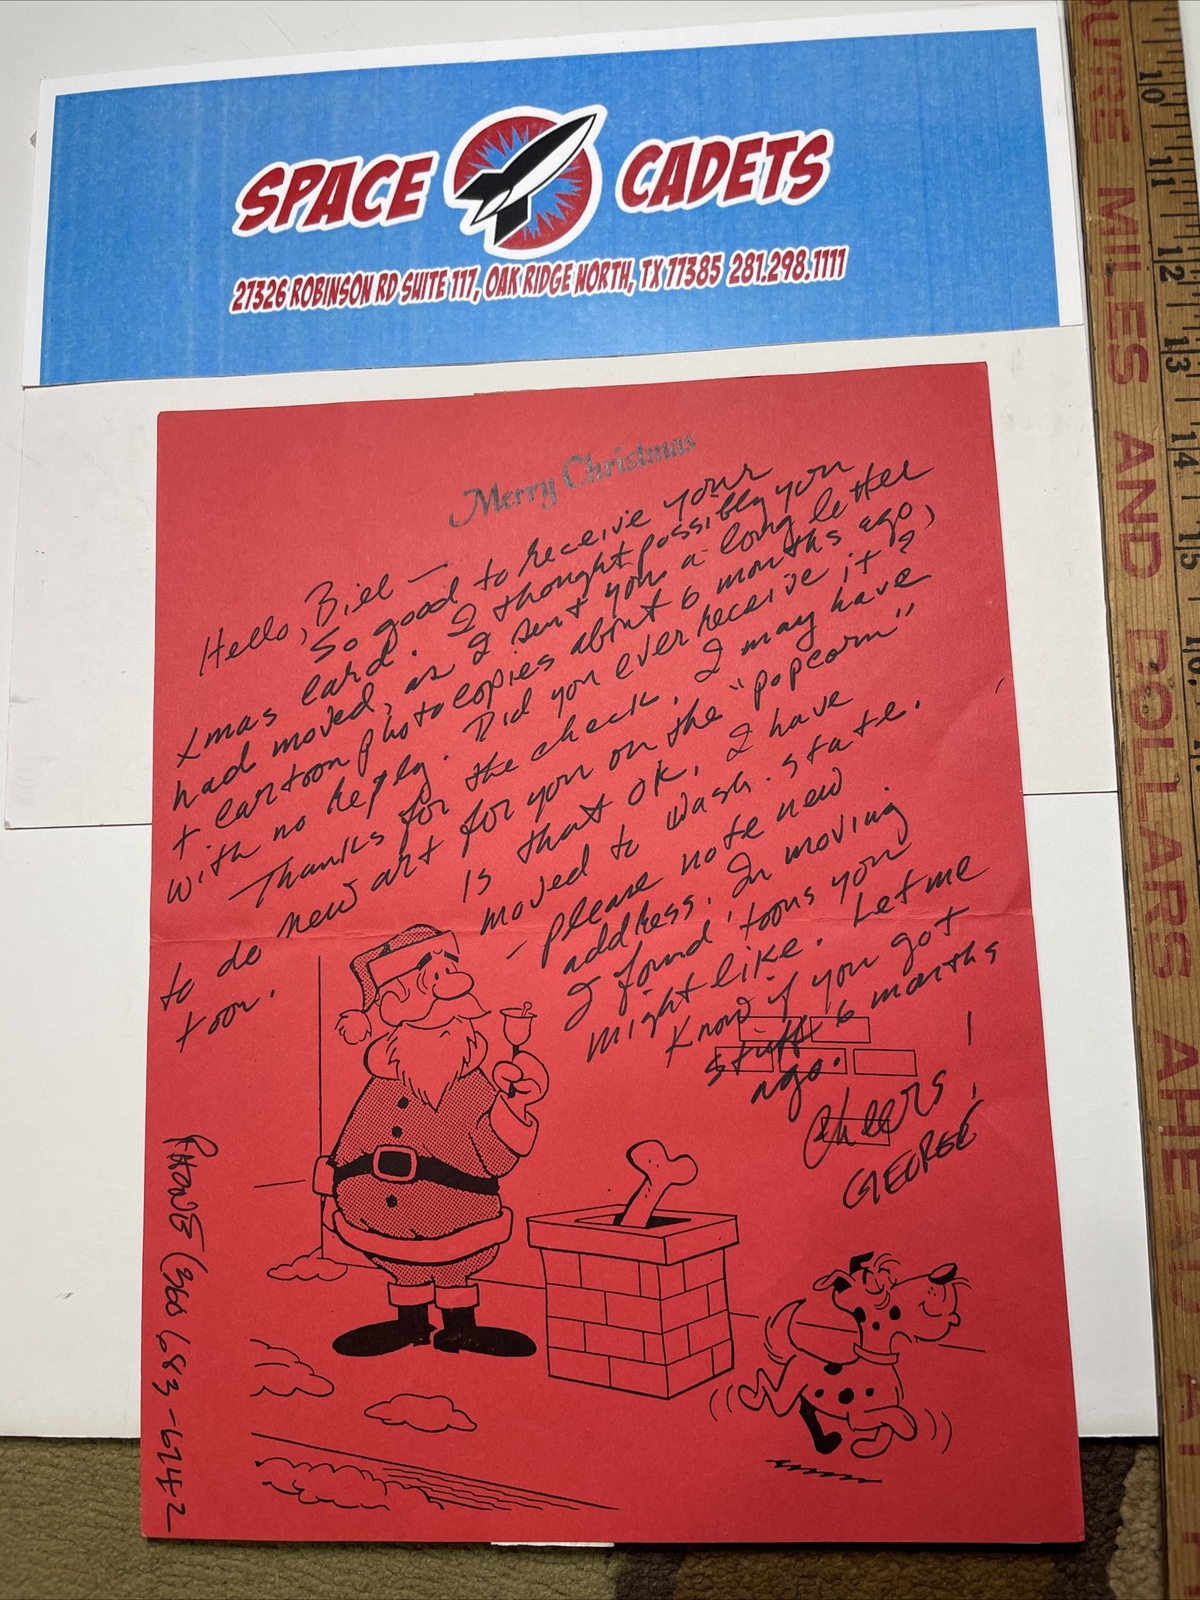 SPACE CADETS
27326 ROBINSON RD SUITE 117, OAK RIDGE NORTH, TX 77385 281.298.1111
Merry Christmas
Hello, Bill —
So good to receive your
Xmas card. I thought possibly you
had moved, as I sent you a long letter
+ cartoon photocopies about 6 months ago,
with no reply. Did you ever receive it?
Thanks for the check. I may have
to do new art for you on the "popcorn"
toon.
Is that OK. I have
moved to Wash. state.
— please note new
address. In moving
I found 'toons you
might like. Let me
know if you got
stuff 6 months
ago.
Cheers!
GEORGE
PHONE (360 683-6742
10
11
12
13
14
15
16
MILES AND DOLLARS AHEAD AT